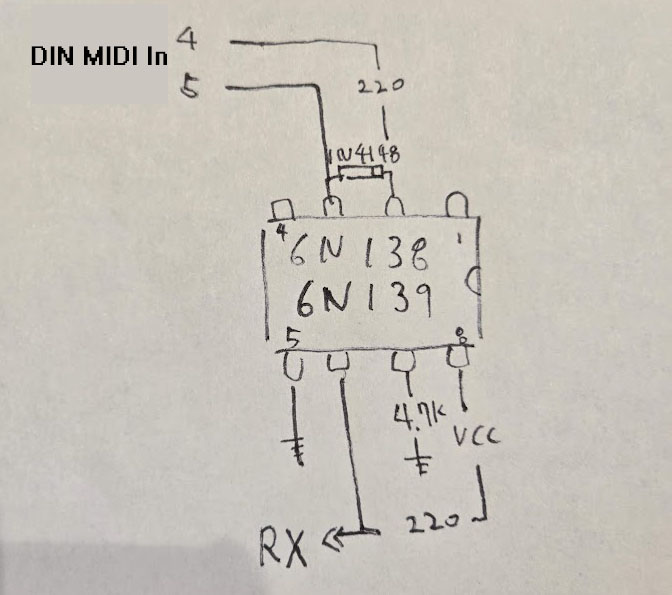 DIN MIDI In
4
5
220
1N4148
4
1
6N 138
6N 139
5
8
4.7K
VCC
220
RX